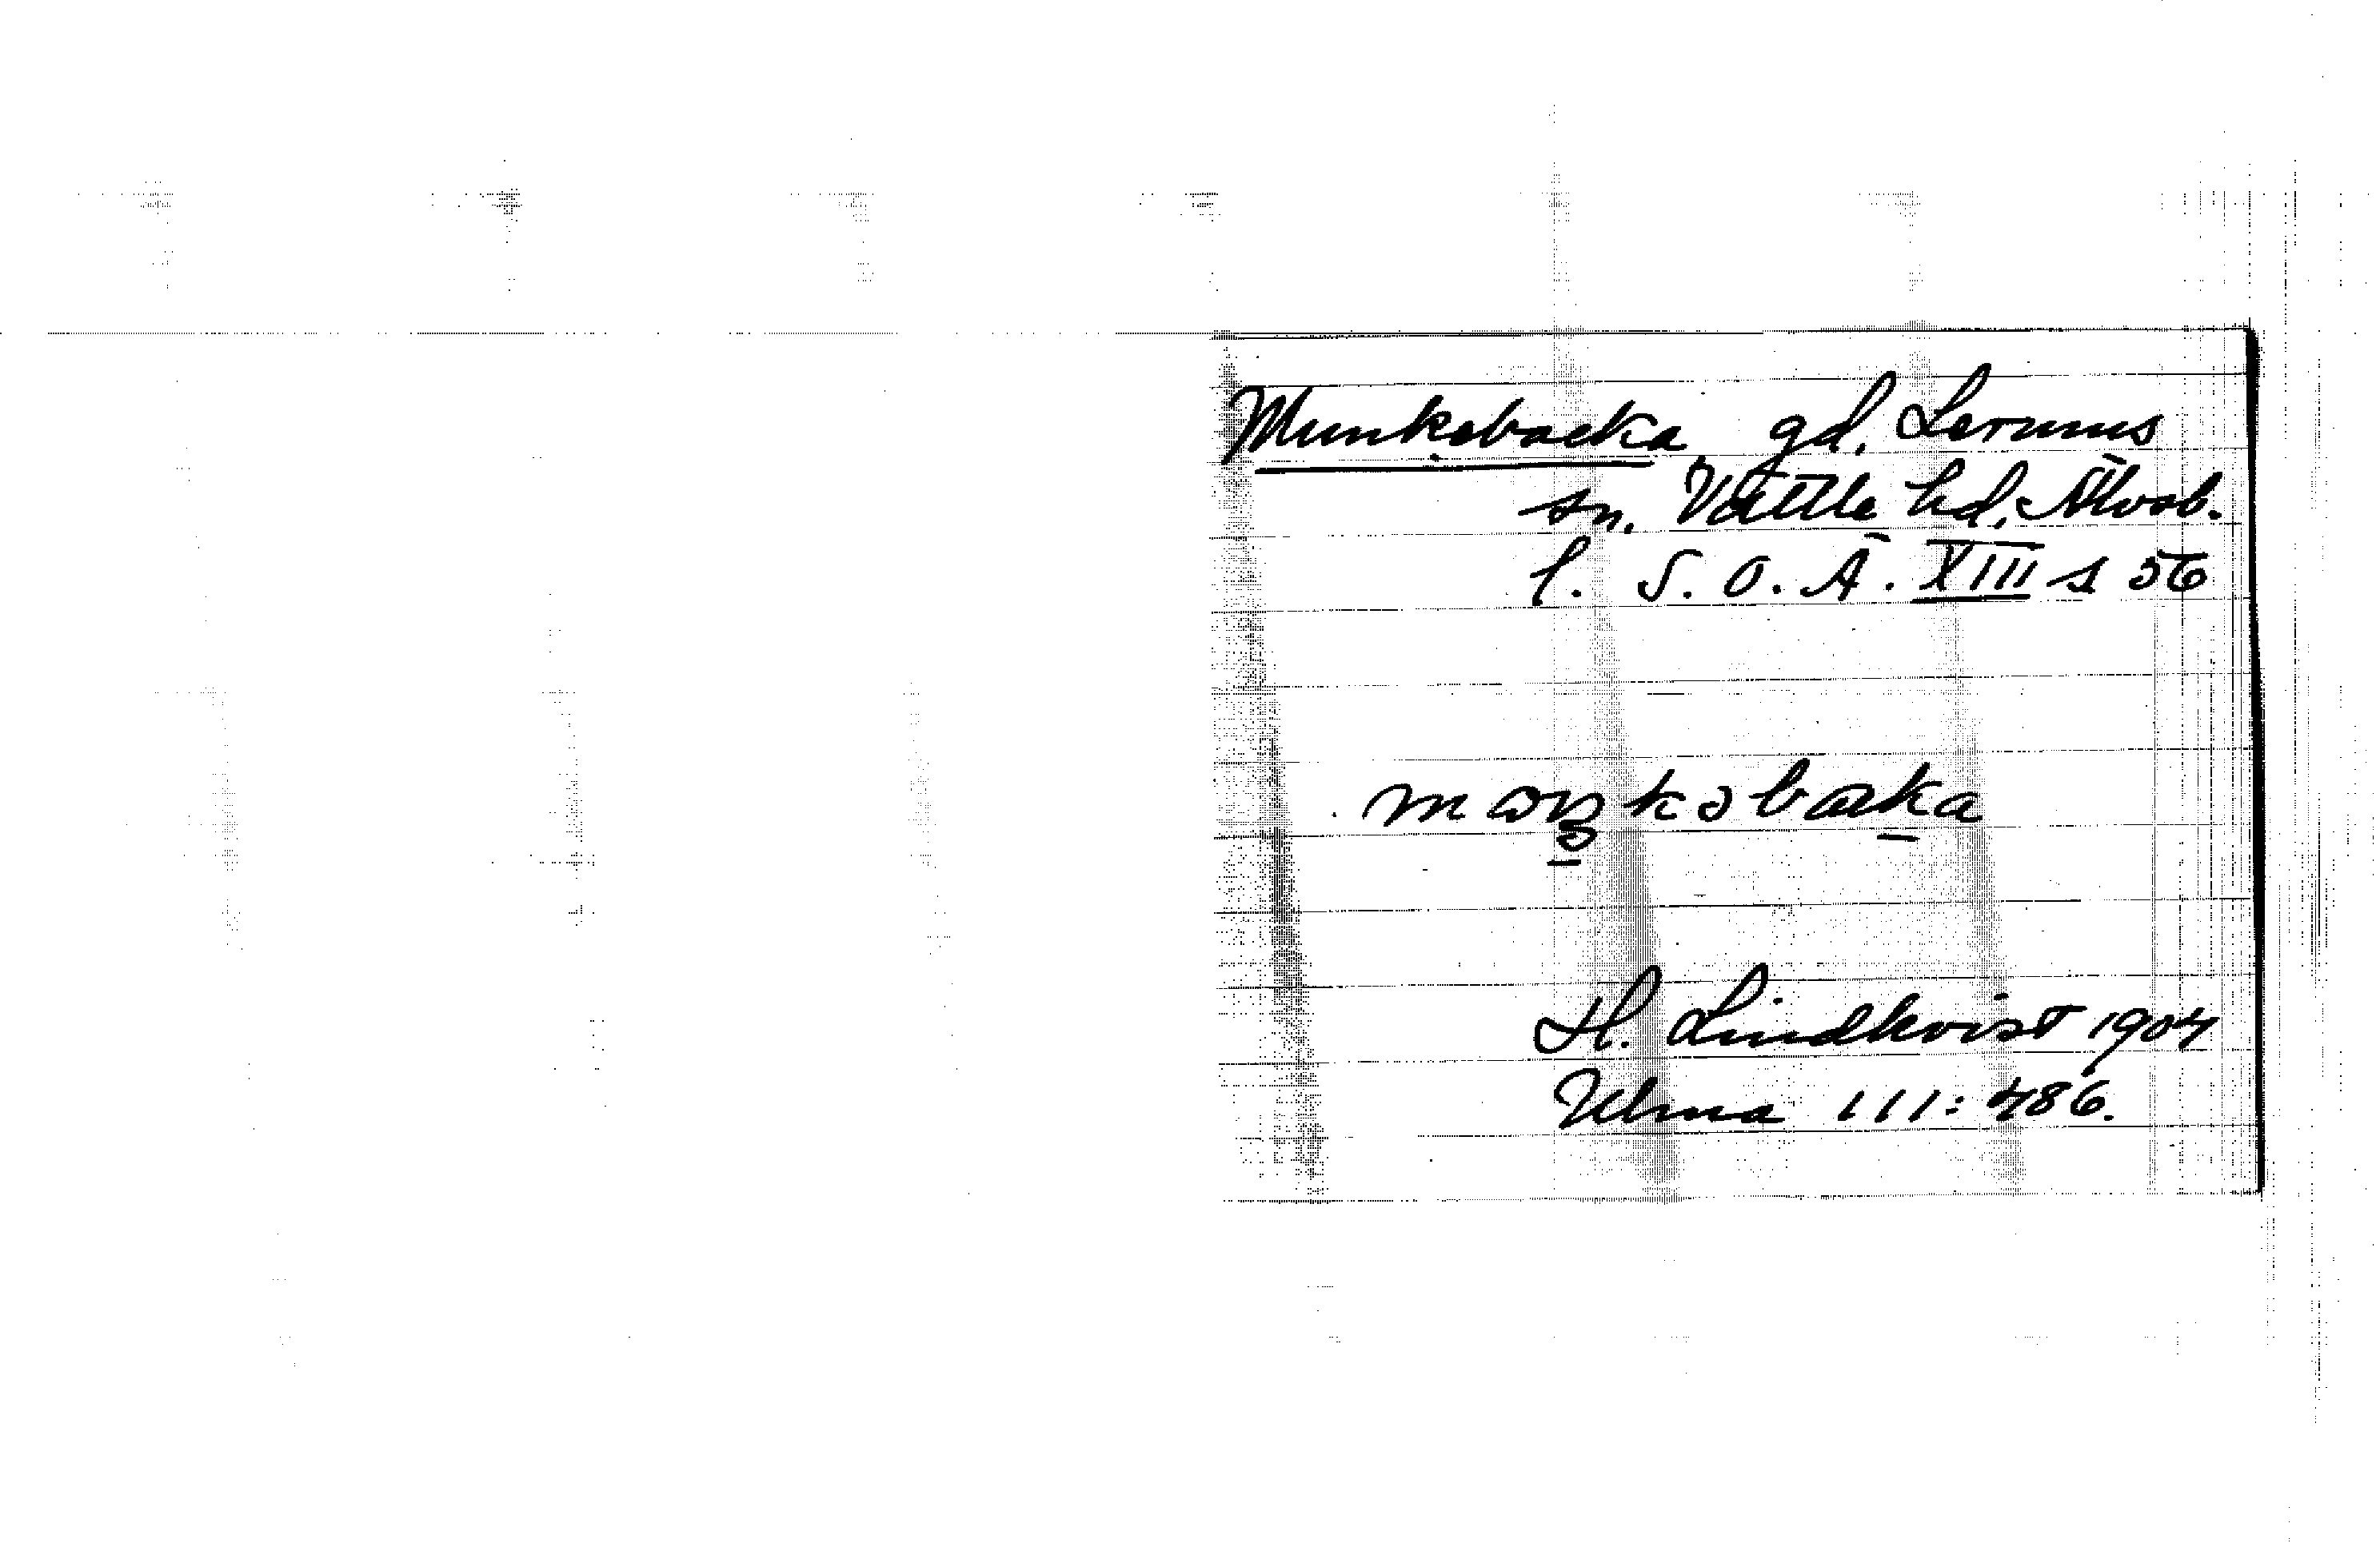 Munkebacka gd. Lerums
sn. Vättle hd. Älvsb.
l. S.O.Ä. XIII s 56
H. Lindkvist 1904
Ulma 111:486.